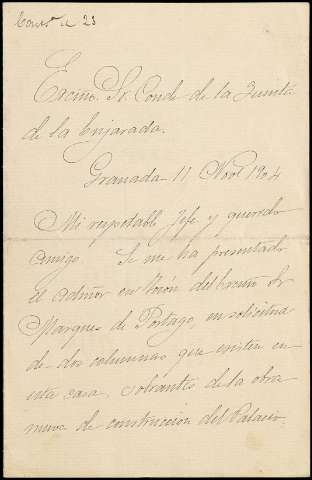 Excmo. Sr. Conde de la Quinta
de la Enjarada.
Granada 11 Nove 1904
Mi respetable Jefe y querido
Amigo. Se me ha presentado
el admor en del Excmo Sr
Marques de Portago, en solicitud
de dos columnas que existen en
esta casa, sobrantes de la obra
nueva de construccion del Palacio